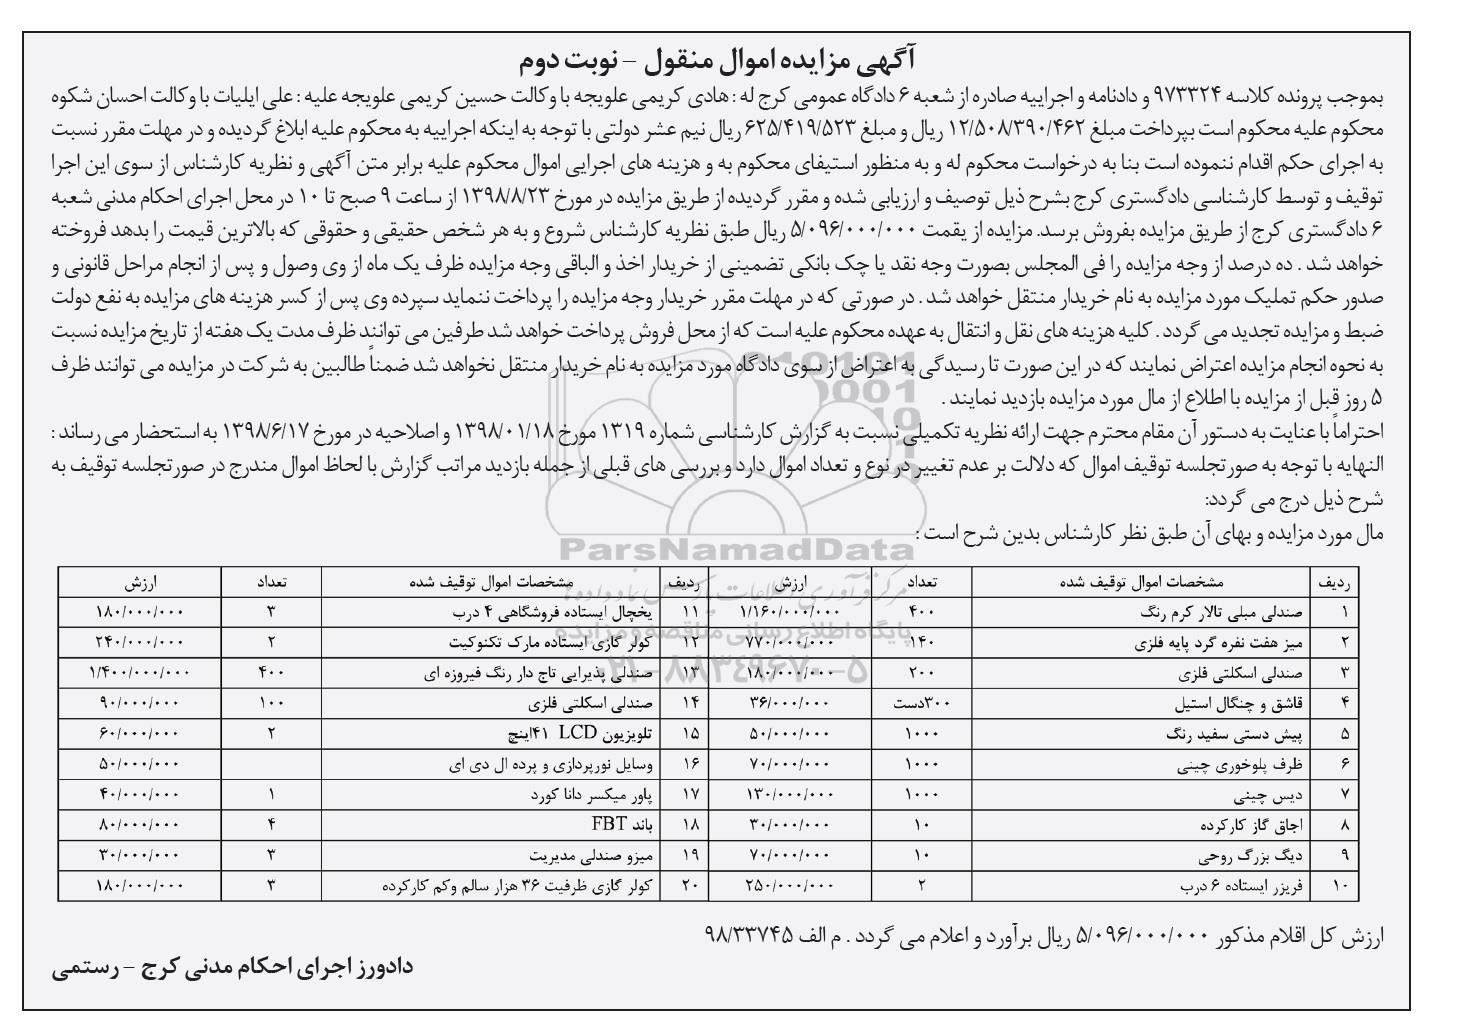 آگهی مزایده اموال منقول – نوبت دوم
بموجب پرونده کلاسه ۹۷۳۳۲۴ و دادنامه و اجراییه صادره از شعبه ۶ دادگاه عمومی کرج له : هادی کریمی علویجه با وکالت حسین کریمی علویجه علیه : علی ایلیات با وکالت احسان شکوه
محکوم علیه محکوم است بپرداخت مبلغ ۱۲/۵۰۸/۳۹۰/۴۶۲ ریال و مبلغ ۶۲۵/۴۱۹/۵۲۳ ریال نیم عشر دولتی با توجه به اینکه اجراییه به محکوم علیه ابلاغ گردیده و در مهلت مقرر نسبت
به اجرای حکم اقدام ننموده است بنا به درخواست محکوم له و به منظور استیفای محکوم به و هزینه های اجرایی اموال محکوم علیه برابر متن آگهی و نظریه کارشناس از سوی این اجرا
توقیف و توسط کارشناسی دادگستری کرج بشرح ذیل توصیف و ارزیابی شده و مقرر گردیده از طریق مزایده در مورخ ۱۳۹۸/۸/۲۳ از ساعت ۹ صبح تا ۱۰ در محل اجرای احکام مدنی شعبه
۶ دادگستری کرج از طریق مزایده بفروش برسد. مزایده از یقمت ۵/۰۹۶/۰۰۰/۰۰۰ ریال طبق نظریه کارشناس شروع و به هر شخص حقیقی و حقوقی که بالاترین قیمت را بدهد فروخته
خواهد شد . ده درصد از وجه مزایده را فی المجلس بصورت وجه نقد یا چک بانکی تضمینی از خریدار اخذ و الباقی وجه مزایده ظرف یک ماه از وی وصول و پس از انجام مراحل قانونی و
صدور حکم تملیک مورد مزایده به نام خریدار منتقل خواهد شد . در صورتی که در مهلت مقرر خریدار وجه مزایده را پرداخت ننماید سپرده وی پس از کسر هزینه های مزایده به نفع دولت
ضبط و مزایده تجدید می گردد . کلیه هزینه های نقل و انتقال به عهده محکوم علیه است که از محل فروش پرداخت خواهد شد طرفین می توانند ظرف مدت یک هفته از تاریخ مزایده نسبت
به نحوه انجام مزایده اعتراض نمایند که در این صورت تا رسیدگی به اعتراض از سوی دادگاه مورد مزایده به نام خریدار منتقل نخواهد شد ضمناً طالبین به شرکت در مزایده می توانند ظرف
۵ روز قبل از مزایده با اطلاع از مال مورد مزایده بازدید نمایند .
احتراماً با عنایت به دستور آن مقام محترم جهت ارائه نظریه تکمیلی نسبت به گزارش کارشناسی شماره ۱۳۱۹ مورخ ۱۳۹۸/۰۱/۱۸ و اصلاحیه در مورخ ۱۳۹۸/۶/۱۷ به استحضار می رساند :
النهایه با توجه به صورتجلسه توقیف اموال که دلالت بر عدم تغییر در نوع و تعداد اموال دارد و بررسی های قبلی از جمله بازدید مراتب گزارش با لحاظ اموال مندرج در صورتجلسه توقیف به
شرح ذیل درج می گردد:
مال مورد مزایده و بهای آن طبق نظر کارشناس بدین شرح است :
ParsNamadData
مرکز فرآوری اطلاعات پارس نماد داده ها
پایگاه اطلاع رسانی مناقصه و مزایده
۰۲۱-۸۸۳۴۹۶۷۰-۵
ردیف مشخصات اموال توقیف شده تعداد ارزش ردیف مشخصات اموال توقیف شده تعداد ارزش
۱ صندلی مبلی تالار کرم رنگ ۴۰۰ ۱/۱۶۰/۰۰۰/۰۰۰ ۱۱ یخچال ایستاده فروشگاهی ۴ درب ۳ ۱۸۰/۰۰۰/۰۰۰
۲ میز هفت نفره گرد پایه فلزی ۱۴۰ ۷۷۰/۰۰۰/۰۰۰ ۱۲ کولر گازی ایستاده مارک تکنوکیت ۲ ۲۴۰/۰۰۰/۰۰۰
۳ صندلی اسکلتی فلزی ۲۰۰ ۱۸۰/۰۰۰/۰۰۰ ۱۳ صندلی پذیرایی تاج دار رنگ فیروزه ای ۴۰۰ ۱/۴۰۰/۰۰۰/۰۰۰
۴ قاشق و چنگال استیل ۳۰۰دست ۳۶/۰۰۰/۰۰۰ ۱۴ صندلی اسکلتی فلزی ۱۰۰ ۹۰/۰۰۰/۰۰۰
۵ پیش دستی سفید رنگ ۱۰۰۰ ۵۰/۰۰۰/۰۰۰ ۱۵ تلویزیون LCD ۴۱اینچ ۲ ۶۰/۰۰۰/۰۰۰
۶ ظرف پلوخوری چینی ۱۰۰۰ ۷۰/۰۰۰/۰۰۰ ۱۶ وسایل نورپردازی و پرده ال دی ای ۵۰/۰۰۰/۰۰۰
۷ دیس چینی ۱۰۰۰ ۱۳۰/۰۰۰/۰۰۰ ۱۷ پاور میکسر دانا کورد ۱ ۴۰/۰۰۰/۰۰۰
۸ اجاق گاز کارکرده ۱۰ ۳۰/۰۰۰/۰۰۰ ۱۸ باند FBT ۴ ۸۰/۰۰۰/۰۰۰
۹ دیگ بزرگ روحی ۱۰ ۷۰/۰۰۰/۰۰۰ ۱۹ میزو صندلی مدیریت ۳ ۳۰/۰۰۰/۰۰۰
۱۰ فریزر ایستاده ۶ درب ۲ ۲۵۰/۰۰۰/۰۰۰ ۲۰ کولر گازی ظرفیت ۳۶ هزار سالم وکم کارکرده ۳ ۱۸۰/۰۰۰/۰۰۰
ارزش کل اقلام مذکور ۵/۰۹۶/۰۰۰/۰۰۰ ریال برآورد و اعلام می گردد . م الف ۹۸/۳۳۷۴۵
دادورز اجرای احکام مدنی کرج – رستمی